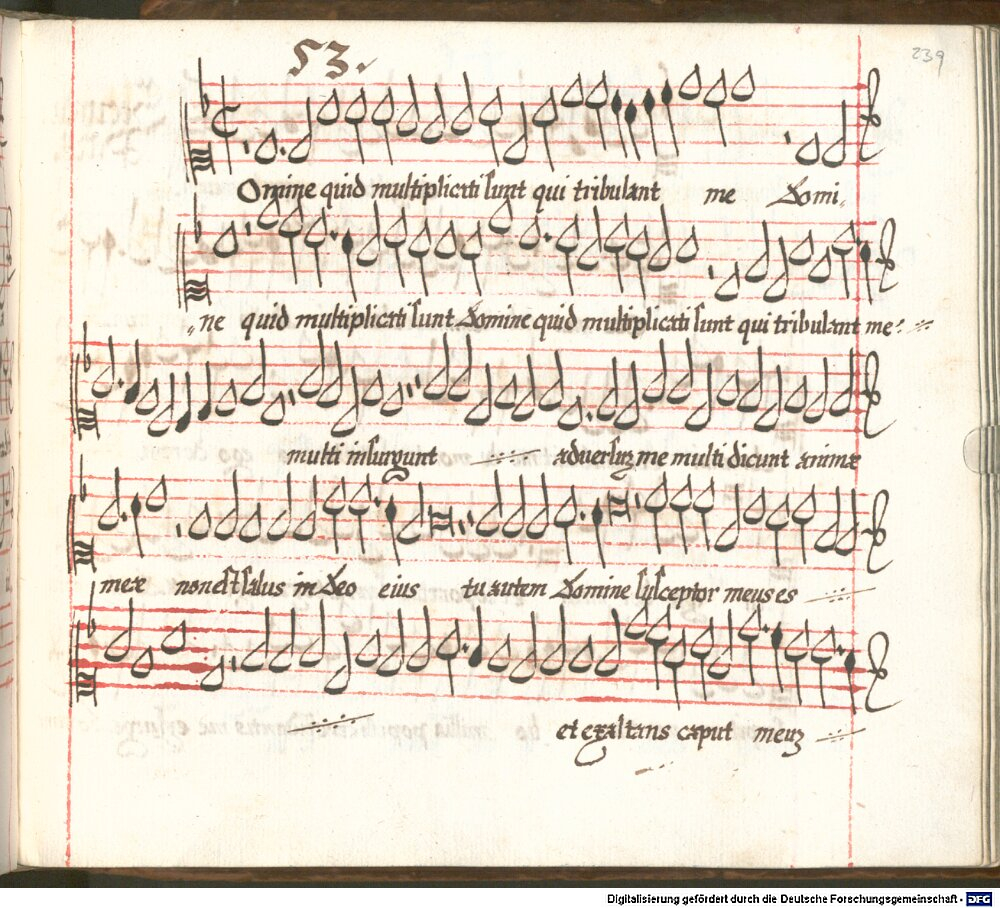 53.
239
Omine quid multiplicati sunt qui tribulant me Domi,
,,ne quid multiplicati sunt Domine quid multiplicati sunt qui tribulant me:
multi insurgunt adversuʒ me multi dicunt animæ
meæ non est salus in Deo eius tu autem Domine susceptor meus es
et exaltans caput meuʒ
Digitalisierung gefördert durch die Deutsche Forschungsgemeinschaft - DFG